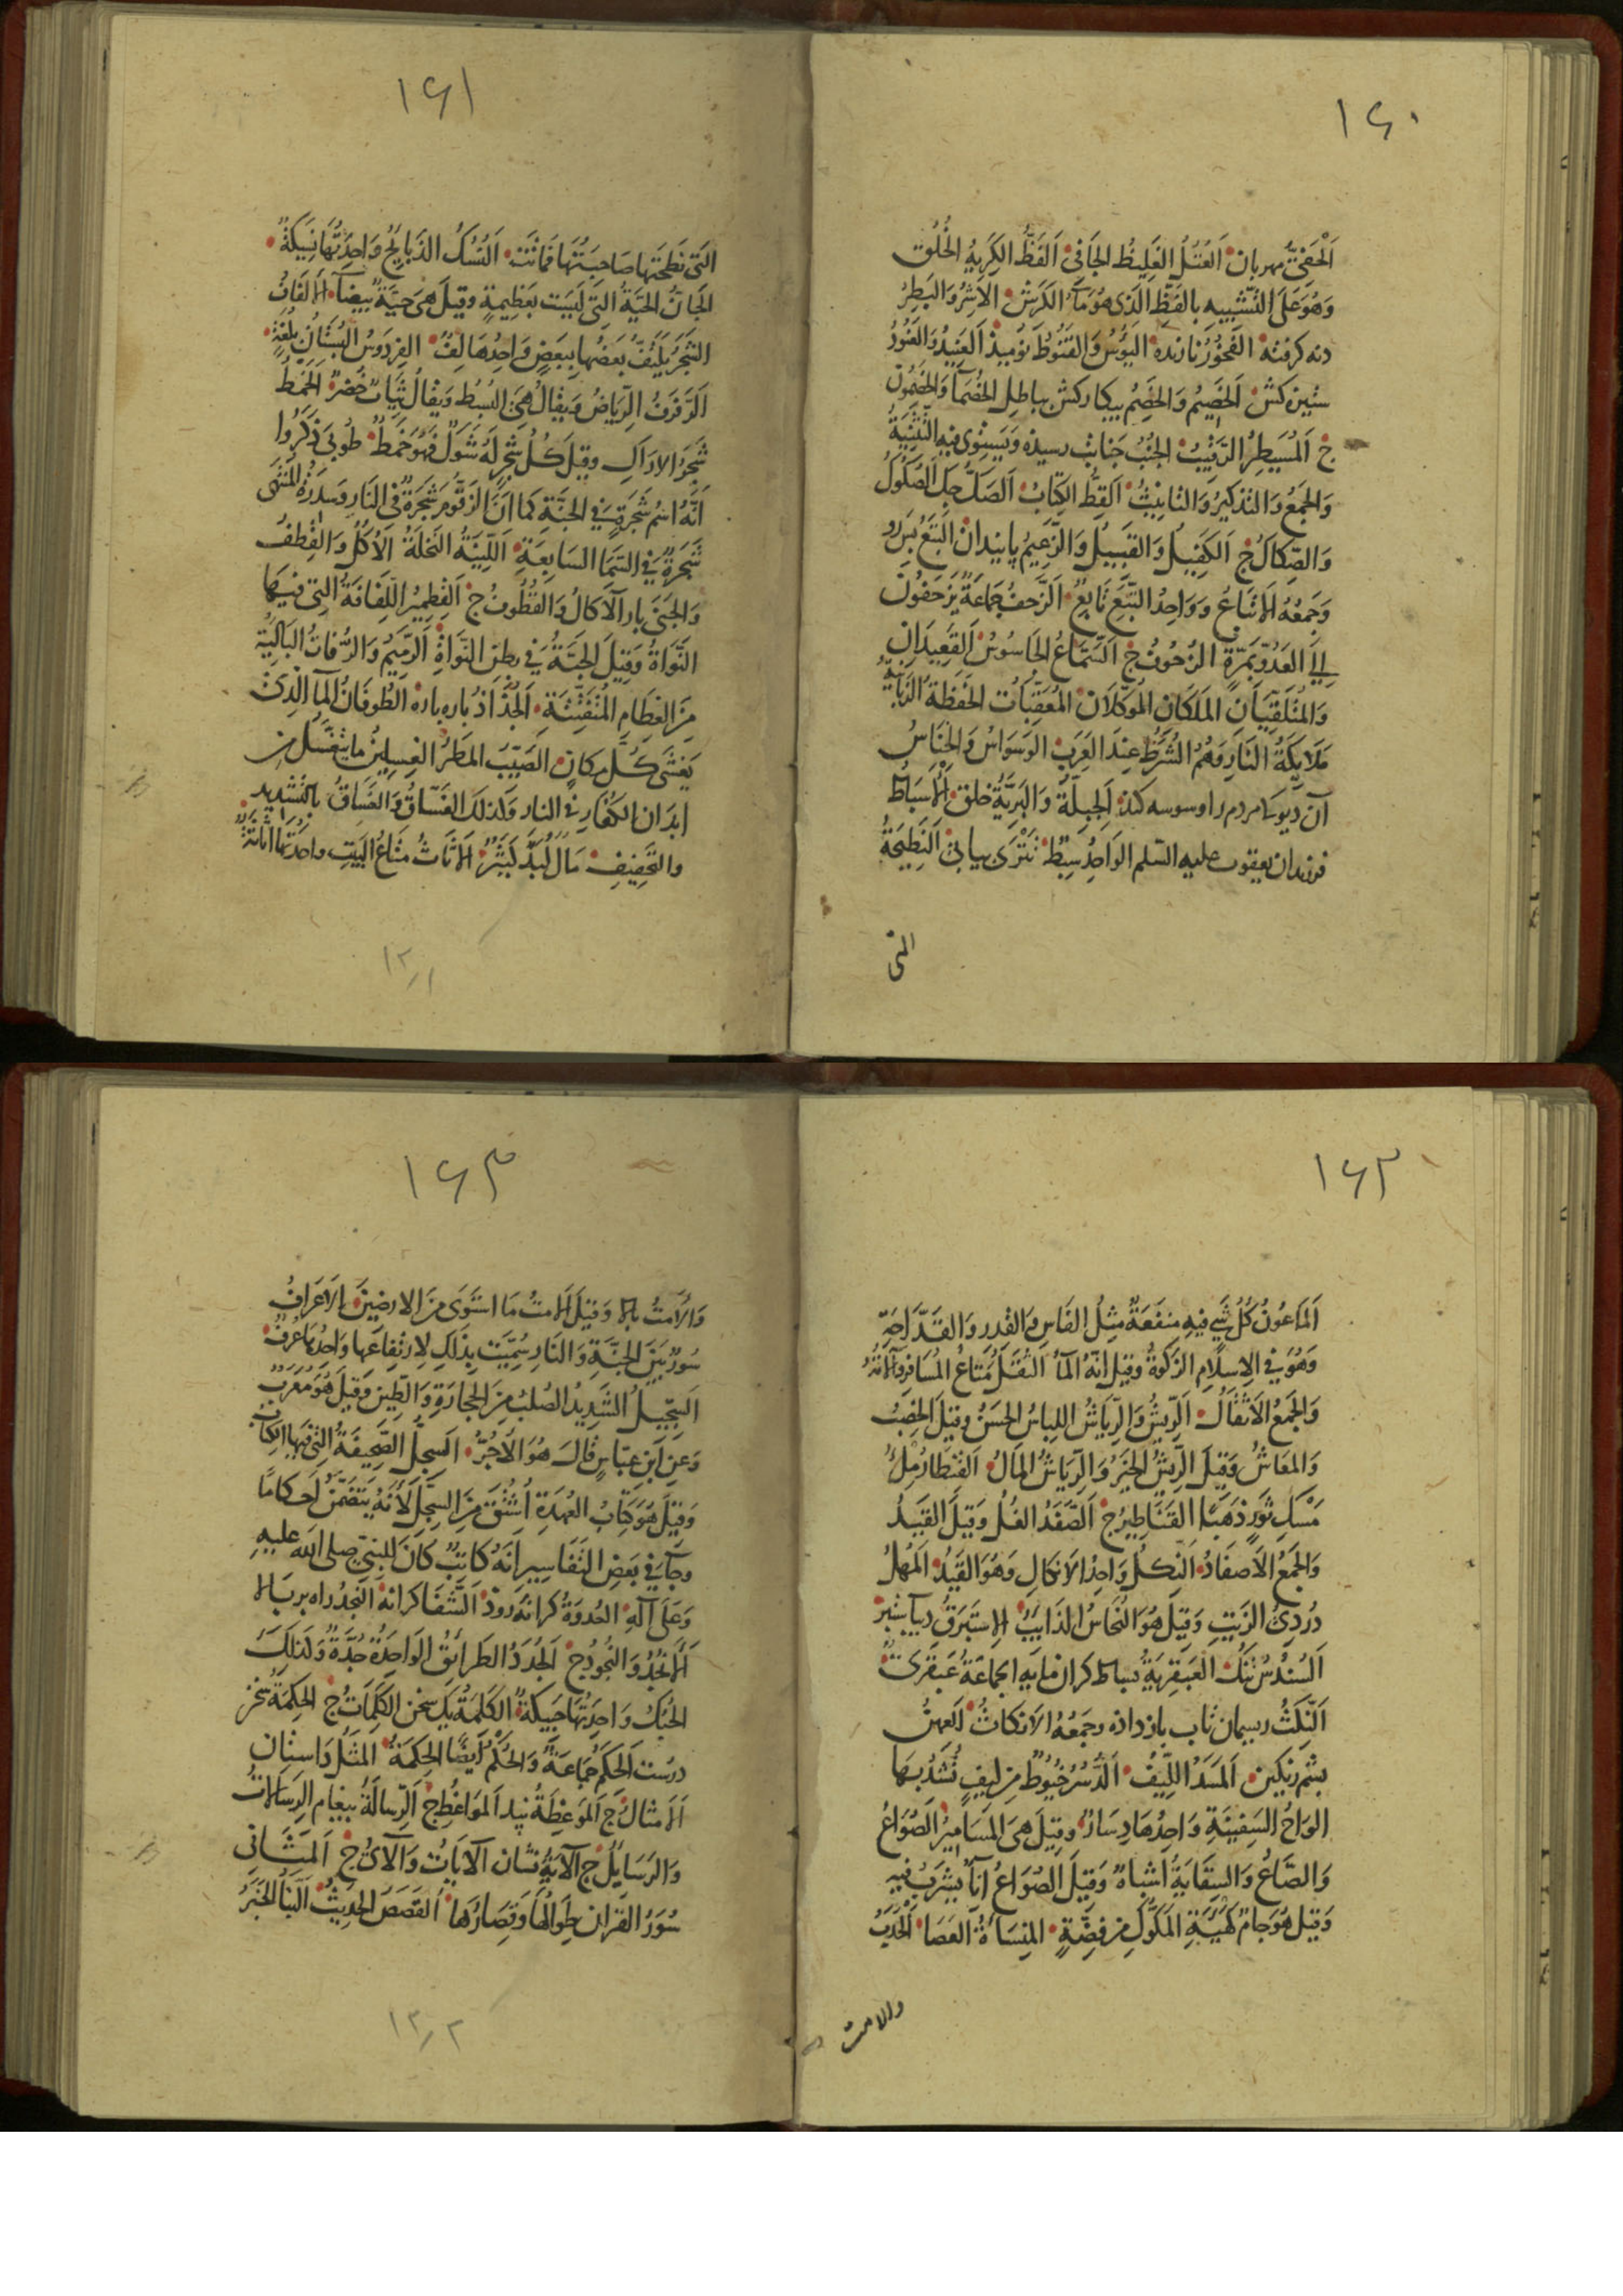 ١٤٠
اَلْحَفِىُّ مهربان اَلْعُتُلُّ الغَلِيظُ الجَافِى اَلفَظُّ الكَرِيهُ الخُلُق
وَهُوَ عَلَى التَّشْبِيهِ بِالفَظِّ الَّذِى هُوَ مَآءُ الكَرِشِ الاَشِرُ وَالبَطِرُ
دنه كرفته الفَخُورُ نازنده اليَؤُسُ وَالقَنُوطُ نوميذ اَلعَنِيدُ وَالعَنُودُ
ستيزه كش اَلخَصِيمُ وَالخَصِمُ پيكاركش بباطل الخُصَمَا وَالخَصِمُونَ
ج اَلمُسَيطِرُ الرَّقِيبُ الجُنُبُ جنابت رسيذه وَيَستَوِى فيه التَّثنِيَةُ
وَالجَمعُ وَالتَّذكِيرُ وَالتَّانِيثُ اَلقِطُّ الكِتَابُ اَلصَكُّ چك الصُكُوكُ
وَالصِّكَاكُ ج اَلكَفِيلُ وَالقَبِيلُ وَالزَّعِيمُ پاينداِن اَلتَّبَعُ پس رو
وَجَمعُهُ الاَتبَاعُ وَوَاحِدُ التَّبَعِ تَابِعٌ اَلزَّحفُ جَمَاعَةٌ يَزحَفُونَ
اِلَى العَدُوِّ بِمَرَّةٍ الزُحُوفُ ج اَلسَّمَّاعُ الجَاسُوسُ اَلقَعِيدَانِ
وَالمُتَلَقِّيَانِ المَلَكَانِ المُوَكَّلَانِ المُعَقِّبَاتُ الحَفَظَةُ الزَّبَانِيَةُ
مَلَايِكَةُ النَّارِ وَهُمُ الشُّرَطُ عِندَ العَرَبِ الوَسوَاسُ وَالخَنَّاسُ
آن ديو كه مردم را وسوسه كند اَلجِبِلَّةُ وَالبَرِيَّةُ خلق الاَسبَاطُ
فرزندان يعقوب عليه السّلم الوَاحِدُ سِبطٌ تَترَى پياپى اَلنَطِيحَةُ
التى
١٤١
التى نَطَحَتهَا صَاحِبَتُهَا فَمَاتَت اَلنُسُكُ الذَبَايِحُ وَاحِدَتُهَا نَسِيكَةٌ
الجَانُّ الحَيَّةُ التِى لَيسَت بِعَظِيمَةٍ وقيلَ هِىَ حَيَّةٌ بَيضَآءُ الاَلفَافُ
الشَجَرُ يَلتَفُّ بَعضُهَا بِبَعضٍ وَاحِدُهَا لِفٌّ الفِردَوسُ البُستَانُ بِلُغَةِ
اَلرَّفرَفُ الرِّيَاضُ وَيقَالُ هِىَ البُسُطُ وَيُقَالُ ثِيَابٌ خُضرٌ اَلخَمطُ
شَجَرُ الاَرَاكِ وقيلَ كُلُّ شَجَرٍ لَهُ شَوكٌ فَهُوَ خَمطٌ طُوبَى ذَكَرُوا
اَنَّهُ اسمُ شَجَرَةٍ فِى الجَنَّةِ كَمَا اَنَّ الزَقُّومَ شَجَرَةٌ فى النَارِ وَسِدرَةُ المُنتَهَى
شَجَرَةٌ فى السَّمَا السَّابِعَةِ اَللِّينَةُ النَّخلَةُ اَلاُكُلُ وَالقِطفُ
وَالجَنَى بار الآكَالُ وَالقُطُوفُ ج اَلقِطمِيرُ اللِّفَافَةُ التِى فيهَا
النَّوَاةُ وَقِيلَ الحَبَّةُ فى بَطنِ النَّوَاةِ اَلرَّمِيمُ وَالرُّفَاتُ البَالِيَةُ
مِنَ العِظَامِ المُتَفَتِّتَةِ اَلجُذَاذُ پاره پاره الطُوفَانُ المَآ الَّذِى
يَغشَى كُلَّ مَكَانٍ الصَيِّبُ المَطَرُ الغِسلِينُ مَا يَنغَسِلُ مِن
ابدَانِ الكُفَّارِ فى النار وَكَذلِكَ الغَسَّاقُ وَالغَسَاقُ بِالتَشدِيدِ
والتَّخفِيفِ مَالٌ لُبَدٌ كَثِيرٌ الاَثَاثُ مَتَاعُ البَيتِ واحِدَتُهَا اَثَاثَةٌ
١٢/١
١٤٢
اَلمَاعُونُ كُلُّ شَىءٍ فيه مَنفَعَةٌ مِثلُ الفَاسِ وَالقِدرِ وَالقَدَّاحَةِ
وَهُوَ فى الاِسلَامِ الزَكوةُ وَقيلَ اِنَّهُ المَآءُ الثَقَلُ مَتَاعُ المُسَافِرِ وَآلَاتُهُ
وَالجَمعُ الاَثقَالُ اَلرِّيشُ وَالرِّيَاشُ اللِبَاسُ الحَسَنُ وقيلَ الخِصبُ
وَالمَعَاشُ وَقِيلَ الرِّيشُ الخَيرُ وَالرِّيَاشُ المَالُ القِنطَارُ مِلءُ
مَسكِ ثَورٍ ذَهَبًا القَنَاطِيرُ ج اَلصَّفَدُ الغُلُّ وَقِيلَ القَيدُ
وَالجَمعُ الاَصفَادُ اَلنِّكلُ وَاحِدُ الاَنكَالِ وَهُوَ القَيدُ اَلمُهلُ
دُردِىُّ الزَيتِ وَقِيلَ هُوَ النُّحَاسُ الذَايِبُ الاِستَبرَقُ ديبا ستبر
اَلسُندُسُ تنك العَبقَرِيَةُ بساط كران مايه الجماعَةُ عَبقَرِىٌّ
اَلنِّكثُ ريسمان تاب باز داده وجَمعُهُ الاَنكَاثُ العِهنُ
پشم رنكين اَلمَسَدُ اللِّيفُ اَلدُّسُرُ خُيُوطٌ مِن لِيفٍ تُشَدُّ بِهَا
الوَاحُ السَفِينَةِ وَاحِدُهَا دِسَارٌ وقِيلَ هِىَ المَسَامِيرُ الصُوَاعُ
وَالصَّاعُ وَالسِقَايَةُ اشبَاهٌ وَقِيلَ الصُوَاعُ اِنَآءٌ يُشرَبُ فِيهِ
وَقيلَ هُوَ جَامٌ كَهَيئَةِ المَكُّوكِ مِن فِضَّةٍ المِنسَأَةُ العَصَا اَلحَدَبُ
والامت
١٤٣
وَالاَمتُ بالا وَقِيلَ الاَمتُ مَا استَوَى مِنَ الاَرضِينَ الاَعرَافُ
سُورٌ بَينَ الجَنَّةِ وَالنَارِ سُمِّيَت بِذَلِكَ لِارتِفَاعِهَا وَاحِدُهَا عُرفٌ
السِجِّيلُ الشَدِيدُ الصُلبُ مِنَ الحِجَارَةِ وَالطِّينِ وَقِيلَ هُوَ مُعَرَّبٌ
وَعَنِ ابنِ عَبّاسٍ قَالَ هُوَ الآجُرُّ السِجِلُّ الصَّحِيفَةُ التِى فيهَا الكِتَابُ
وَقِيلَ هُوَ كِتَابُ العُهدَةِ اُشتُقَّ مِنَ السِجِلِّ لِاَنَّهُ يَتَضَمَّنُ اَحكَامًا
وجَآءَ فى بَعضِ التَفَاسِيرِ اَنَّهُ كَاتِبٌ كَانَ لِلنَّبِىِّ صلى الله عليهِ
وَعَلَى آلِهِ العُدوَةُ كرانهٔ رود الشَّفَا كرانه النَجدُ راه بر بالا
اَلاَنجُدُ وَالنُّجُودُ ج اَلجُدَدُ الطَرَائِقُ الوَاحِدَةُ جُدَّةٌ وَكَذلِكَ
الحُبُكُ وَاحِدَتُهَا حَبِيكَةٌ الكَلِمَةُ يك سخن الكَلِمَاتُ ج الحِكمَةُ سخن
درست الحِكَمُ جَمَاعَةٌ وَالحُكمُ اَيضًا الحِكمَةُ المَثَلُ دَاستان
اَلاَمثَالُ ج اَلمَوعِظَةُ پند المَوَاعِظُ ج اَلرِّسَالَةُ پيغام الرِسَالَاتُ
وَالرَسَايِلُ ج اَلآيَةُ نشان الآيَاتُ وَالآىُ ج اَلمَثَانِى
سُوَرُ القُرانِ طِوَالُهَا وَقِصَارُهَا القَصَصُ الحَدِيثُ النَّبَأُ الخَبَرُ
١٢/٢